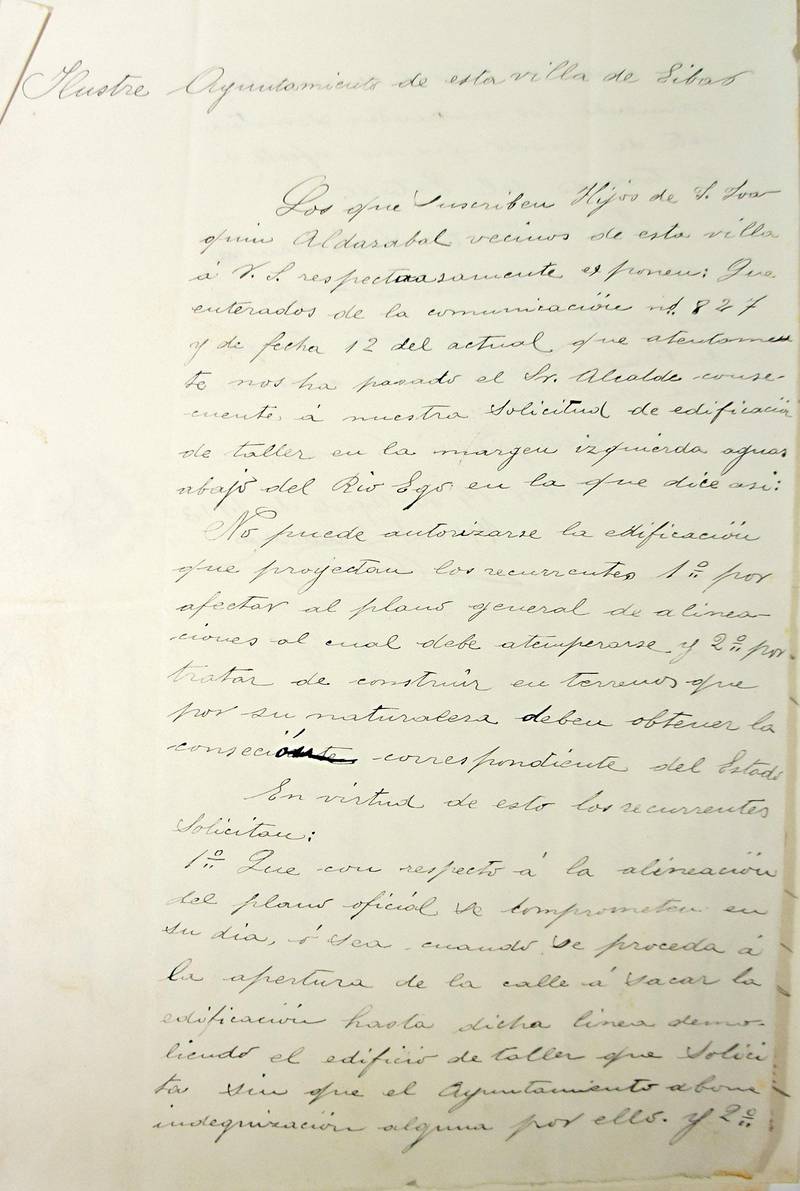 Ilustre Ayuntamiento de esta villa de Eibar
Los que suscriben Hijos de S. Joa
quin Aldazabal vecinos de esta villa
á V. S. respectuasamente exponen: Que
enterados de la comunicación nº. 827
y de fecha 12 del actual que atentamen
te nos ha pasado el Sr. Alcalde conse-
cuente á nuestra solicitud de edificación
de taller en la margen izquierda aguas
abajo del Rio Ego en la que dice asi:
No puede autorizarse la edificación
que proyectan los recurrentes 1º por
afectar al plano general de alinea-
ciones al cual debe atemperarse y 2º por
tratar de construir en terrenos que
por su naturaleza deben obtener la
conseción correspondiente del Estado
En virtud de esto los recurrentes
Solicitan:
1º Que con respecto á la alineación
del plano oficial se comprometen en
su dia, ó sea cuando se proceda á
la apertura de la calle á sacar la
edificación hasta dicha linea demo-
liendo el edificio de taller que solici
ta sin que el Ayuntamiento abone
indegnización alguna por ello. y 2º